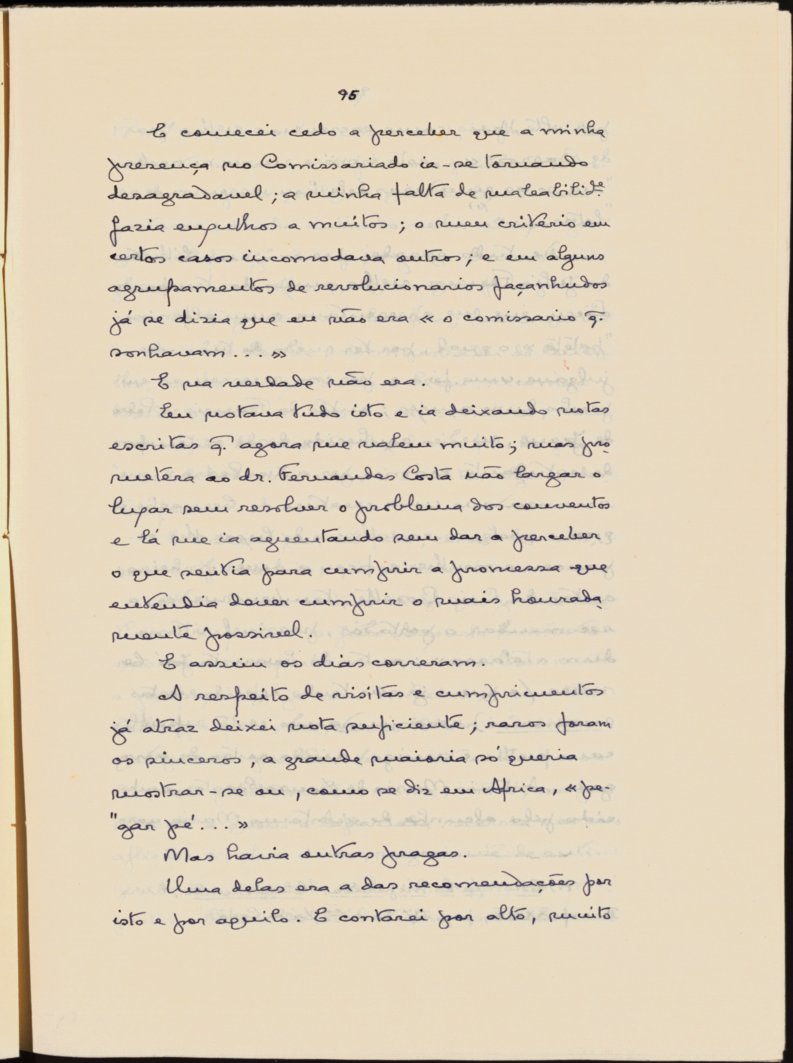 95
E comecei cedo a perceber que a minha
presença no Comissariado ia-se tornando
desagradavel; a minha falta de maleabilid.e
fazia engulhos a muitos; o meu critério em
certos casos incomodava outros; e em alguns
agrupamentos de revolucionarios façanhudos
já se dizia que eu não era « o comissario q.
sonhavam... »
E na verdade não era.
Eu notava tudo isto e ia deixando notas
escritas q. agora me valem muito; mas pro-
metêra ao dr. Fernandes Costa não largar o
lugar sem resolver o problema dos conventos
e lá me ia aguentando sem dar a perceber
o que sentia para cumprir a promessa que
entendia dever cumprir o mais honrada-
mente possivel.
E assim os dias correram.
A respeito de visitas e cumprimentos
já atraz deixei nota suficiente; raros foram
os sinceros, a grande maioria só queria
mostrar-se ou, como se diz em Africa, « pe-
"gar pé... »
Mas havia outras pragas.
Uma delas era a das recomendações por
isto e por aquilo. E contarei por alto, muito